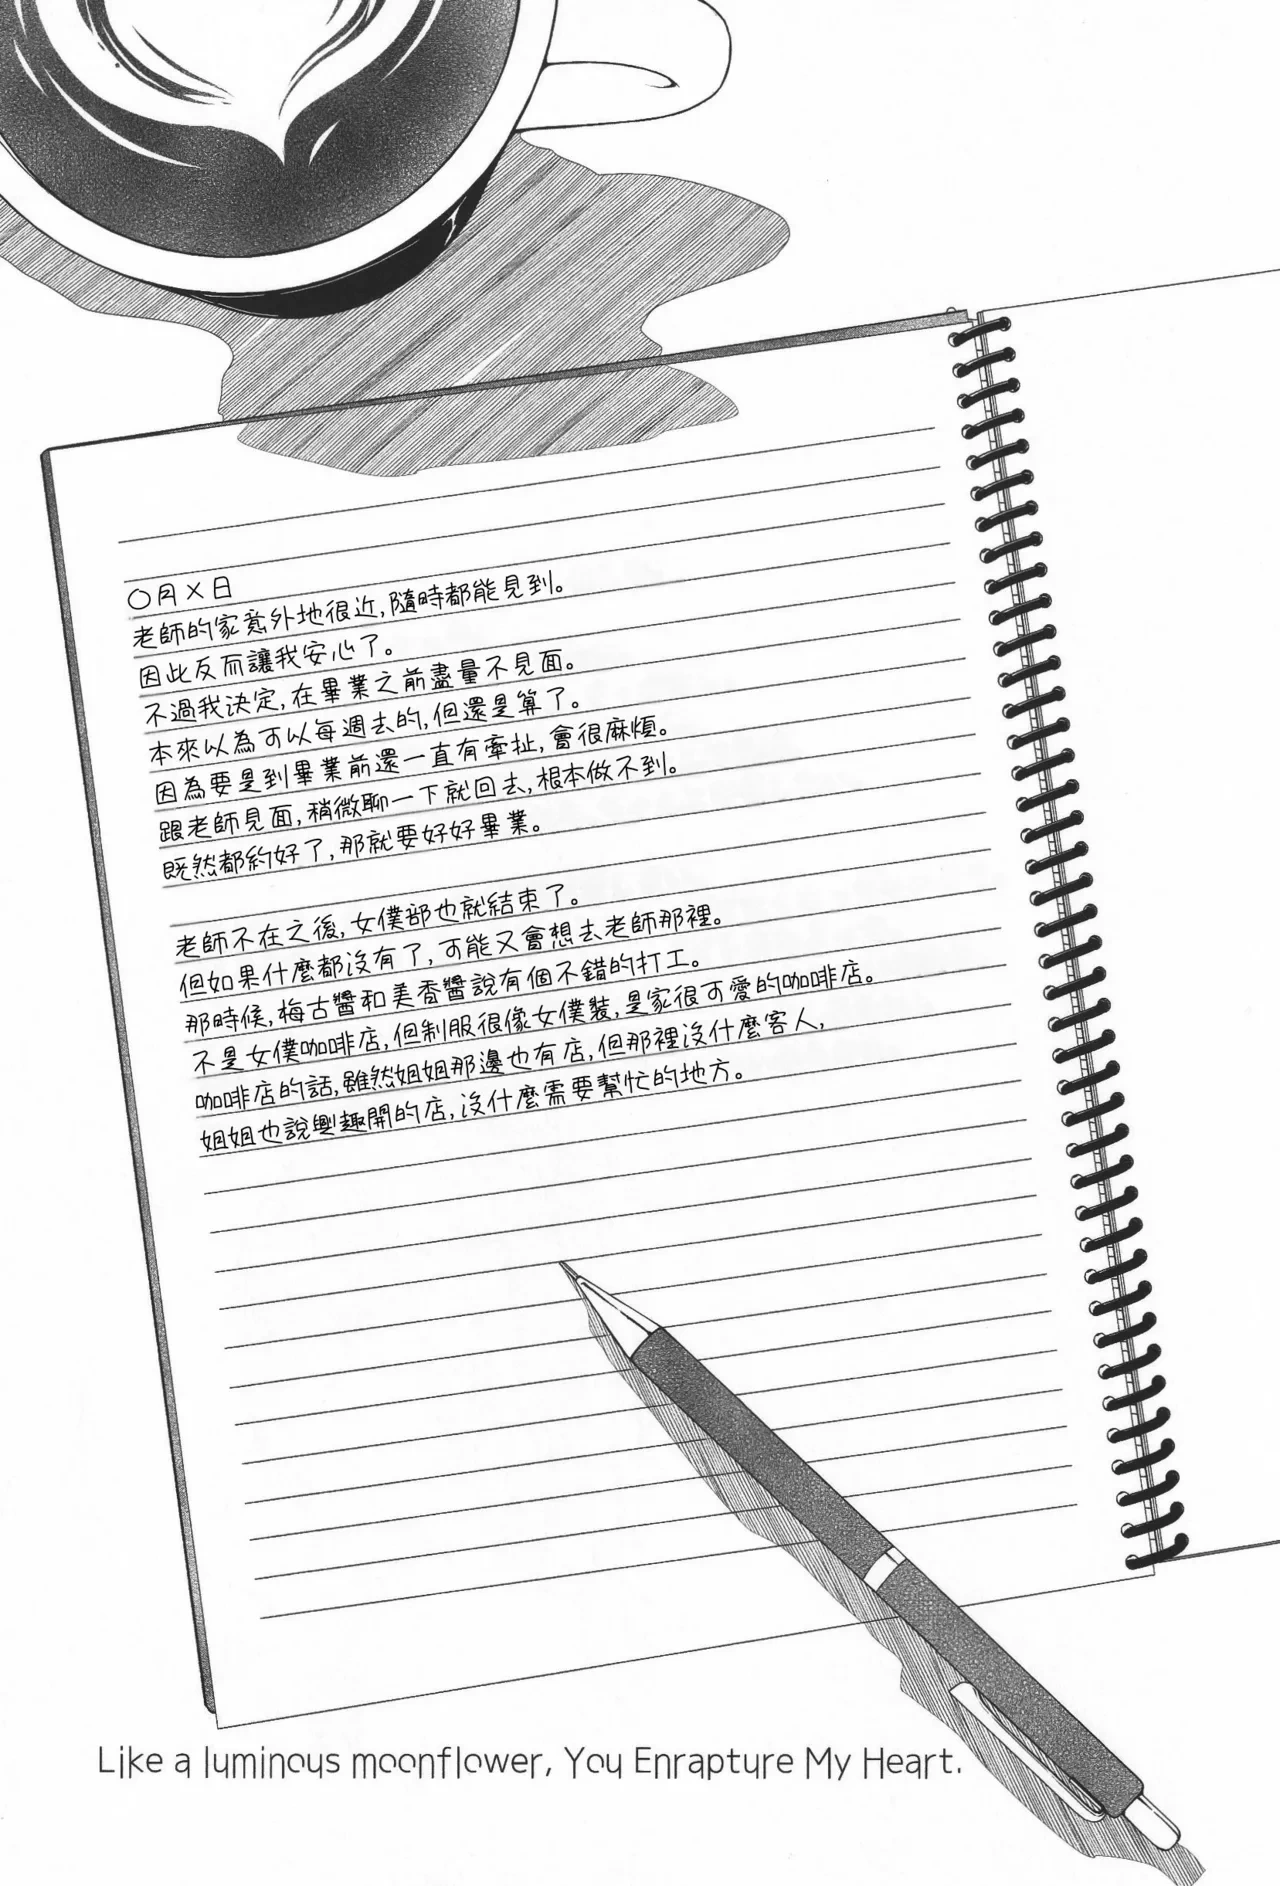 〇月×日
老師的家意外地很近,隨時都能見到。
因此反而讓我安心了。
不過我決定,在畢業之前盡量不見面。
本來以為可以每週去的,但還是算了。
因為要是到畢業前還一直有牽扯,會很麻煩。
跟老師見面,稍微聊一下就回去,根本做不到。
既然都約好了,那就要好好畢業。
老師不在之後,女僕部也就結束了。
但如果什麼都沒有了,可能又會想去老師那裡。
那時候,梅古醬和美香醬說有個不錯的打工。
不是女僕咖啡店,但制服很像女僕裝,是家很可愛的咖啡店。
咖啡店的話,雖然姐姐那邊也有店,但那裡沒什麼客人,
姐姐也說興趣開的店,沒什麼需要幫忙的地方。
Like a luminous moonflower, You Enrapture My Heart.